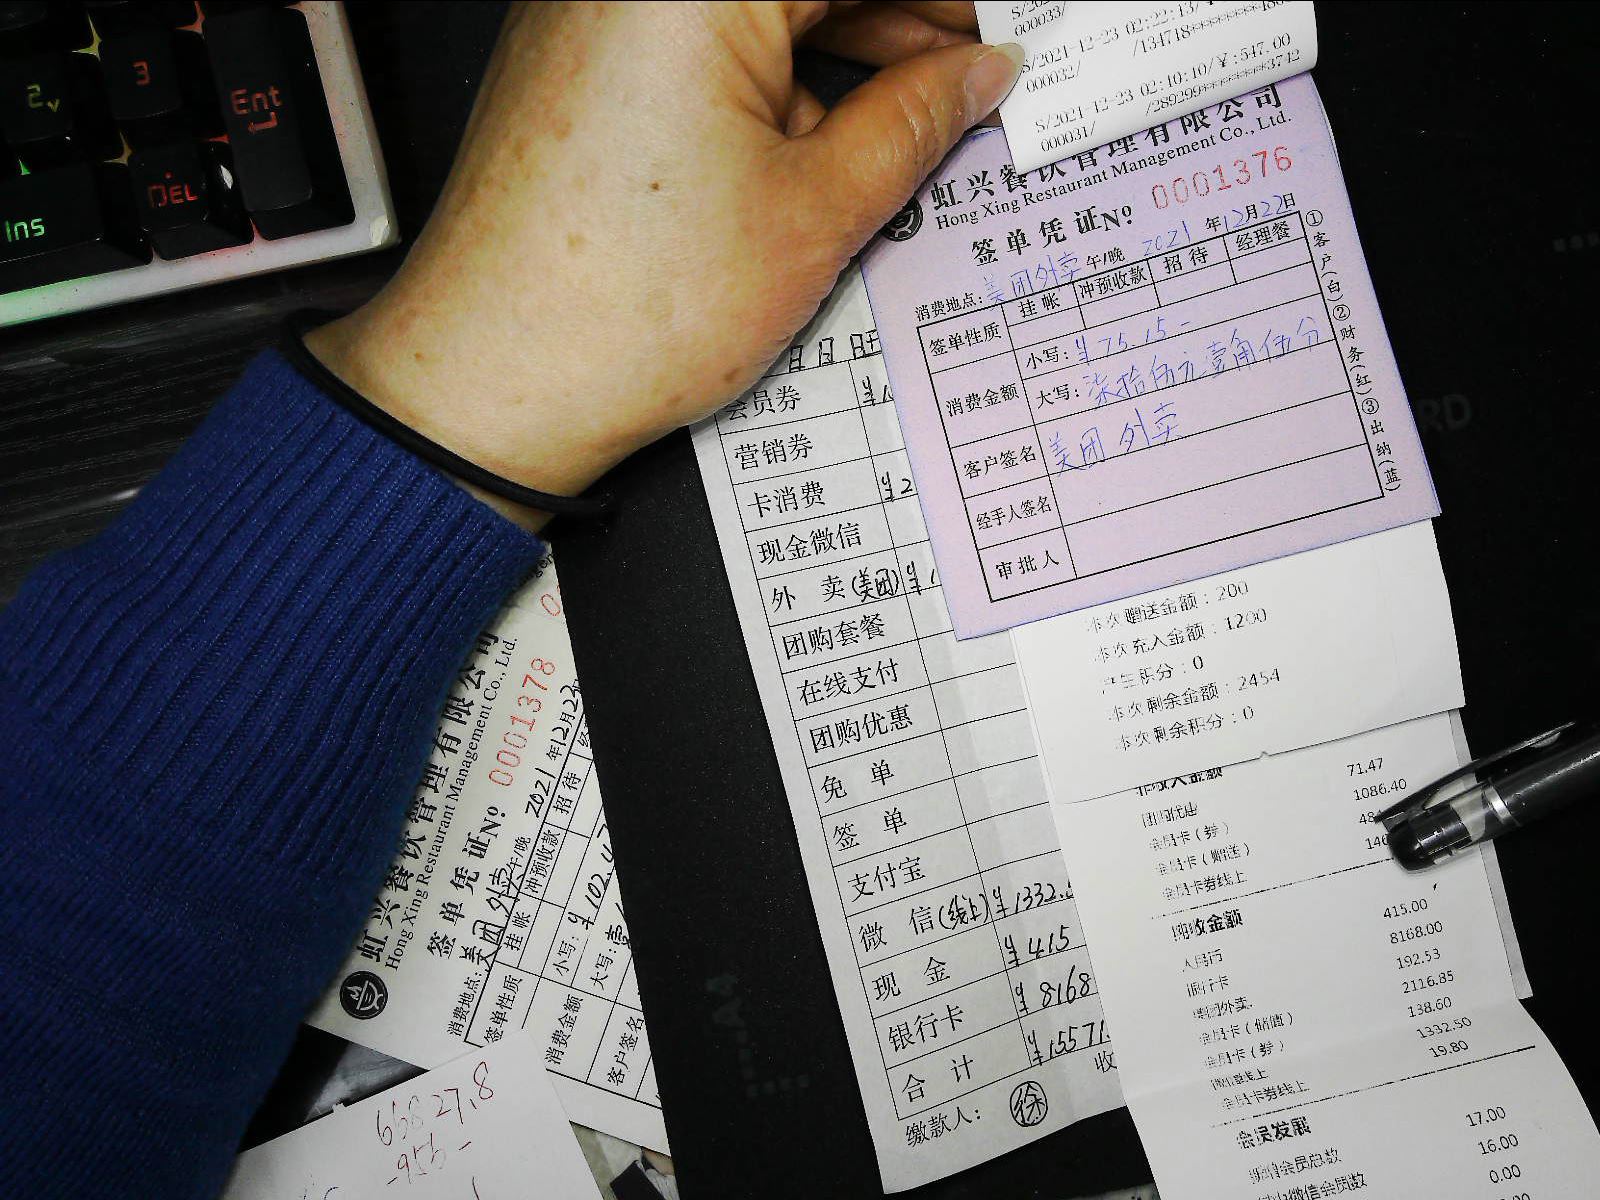 2
3
Ent
DEL
Ins
000033/
S/2021-12-23 02:22:13/
000032/ /134718********
S/2021-12-23 02:10:10/¥:547.00
000031/ /289299********3742
虹兴餐饮管理有限公司
Hong Xing Restaurant Management Co., Ltd.
签单凭证№ 0001376
消费地点: 美团外卖 午/晚 2021年12月22日
签单性质 挂帐 冲预收款 招待 经理餐
消费金额 小写: ¥75.15-
大写: 柒拾伍元壹角伍分
客户签名 美团外卖
经手人签名
审批人
①客户(白)②财务(红)③出纳(蓝)
会员券
营销券
卡消费 ¥2
现金微信
外 卖(美团) ¥1
团购套餐
在线支付
团购优惠
免 单
签 单
支付宝
微 信(线上) ¥1332.
现 金 ¥415
银行卡 ¥8168
合 计 ¥15571.
缴款人: 徐 收
本次赠送金额:200
本次充入金额:1200
产生积分:0
本次剩余金额:2454
本次剩余积分:0
71.47
团购优惠 1086.40
会员卡(券)
会员卡(赠送)
会员卡券线上
415.00
人民币 8168.00
银行卡 192.53
美团外卖 2116.85
会员卡(储值) 138.60
会员卡(券) 1332.50
微信线上 19.80
会员卡券线上
会员发展 17.00
新增会员总数 16.00
微信会员数 0.00
虹兴餐饮管理有限公司
Hong Xing Restaurant Management Co., Ltd.
签单凭证№ 0001378
消费地点: 美团外卖 午/晚 2021年12月23
签单性质 挂帐 冲预收款 招待
消费金额 小写: ¥102.4
大写: 壹
客户签名
66827.8
-955-